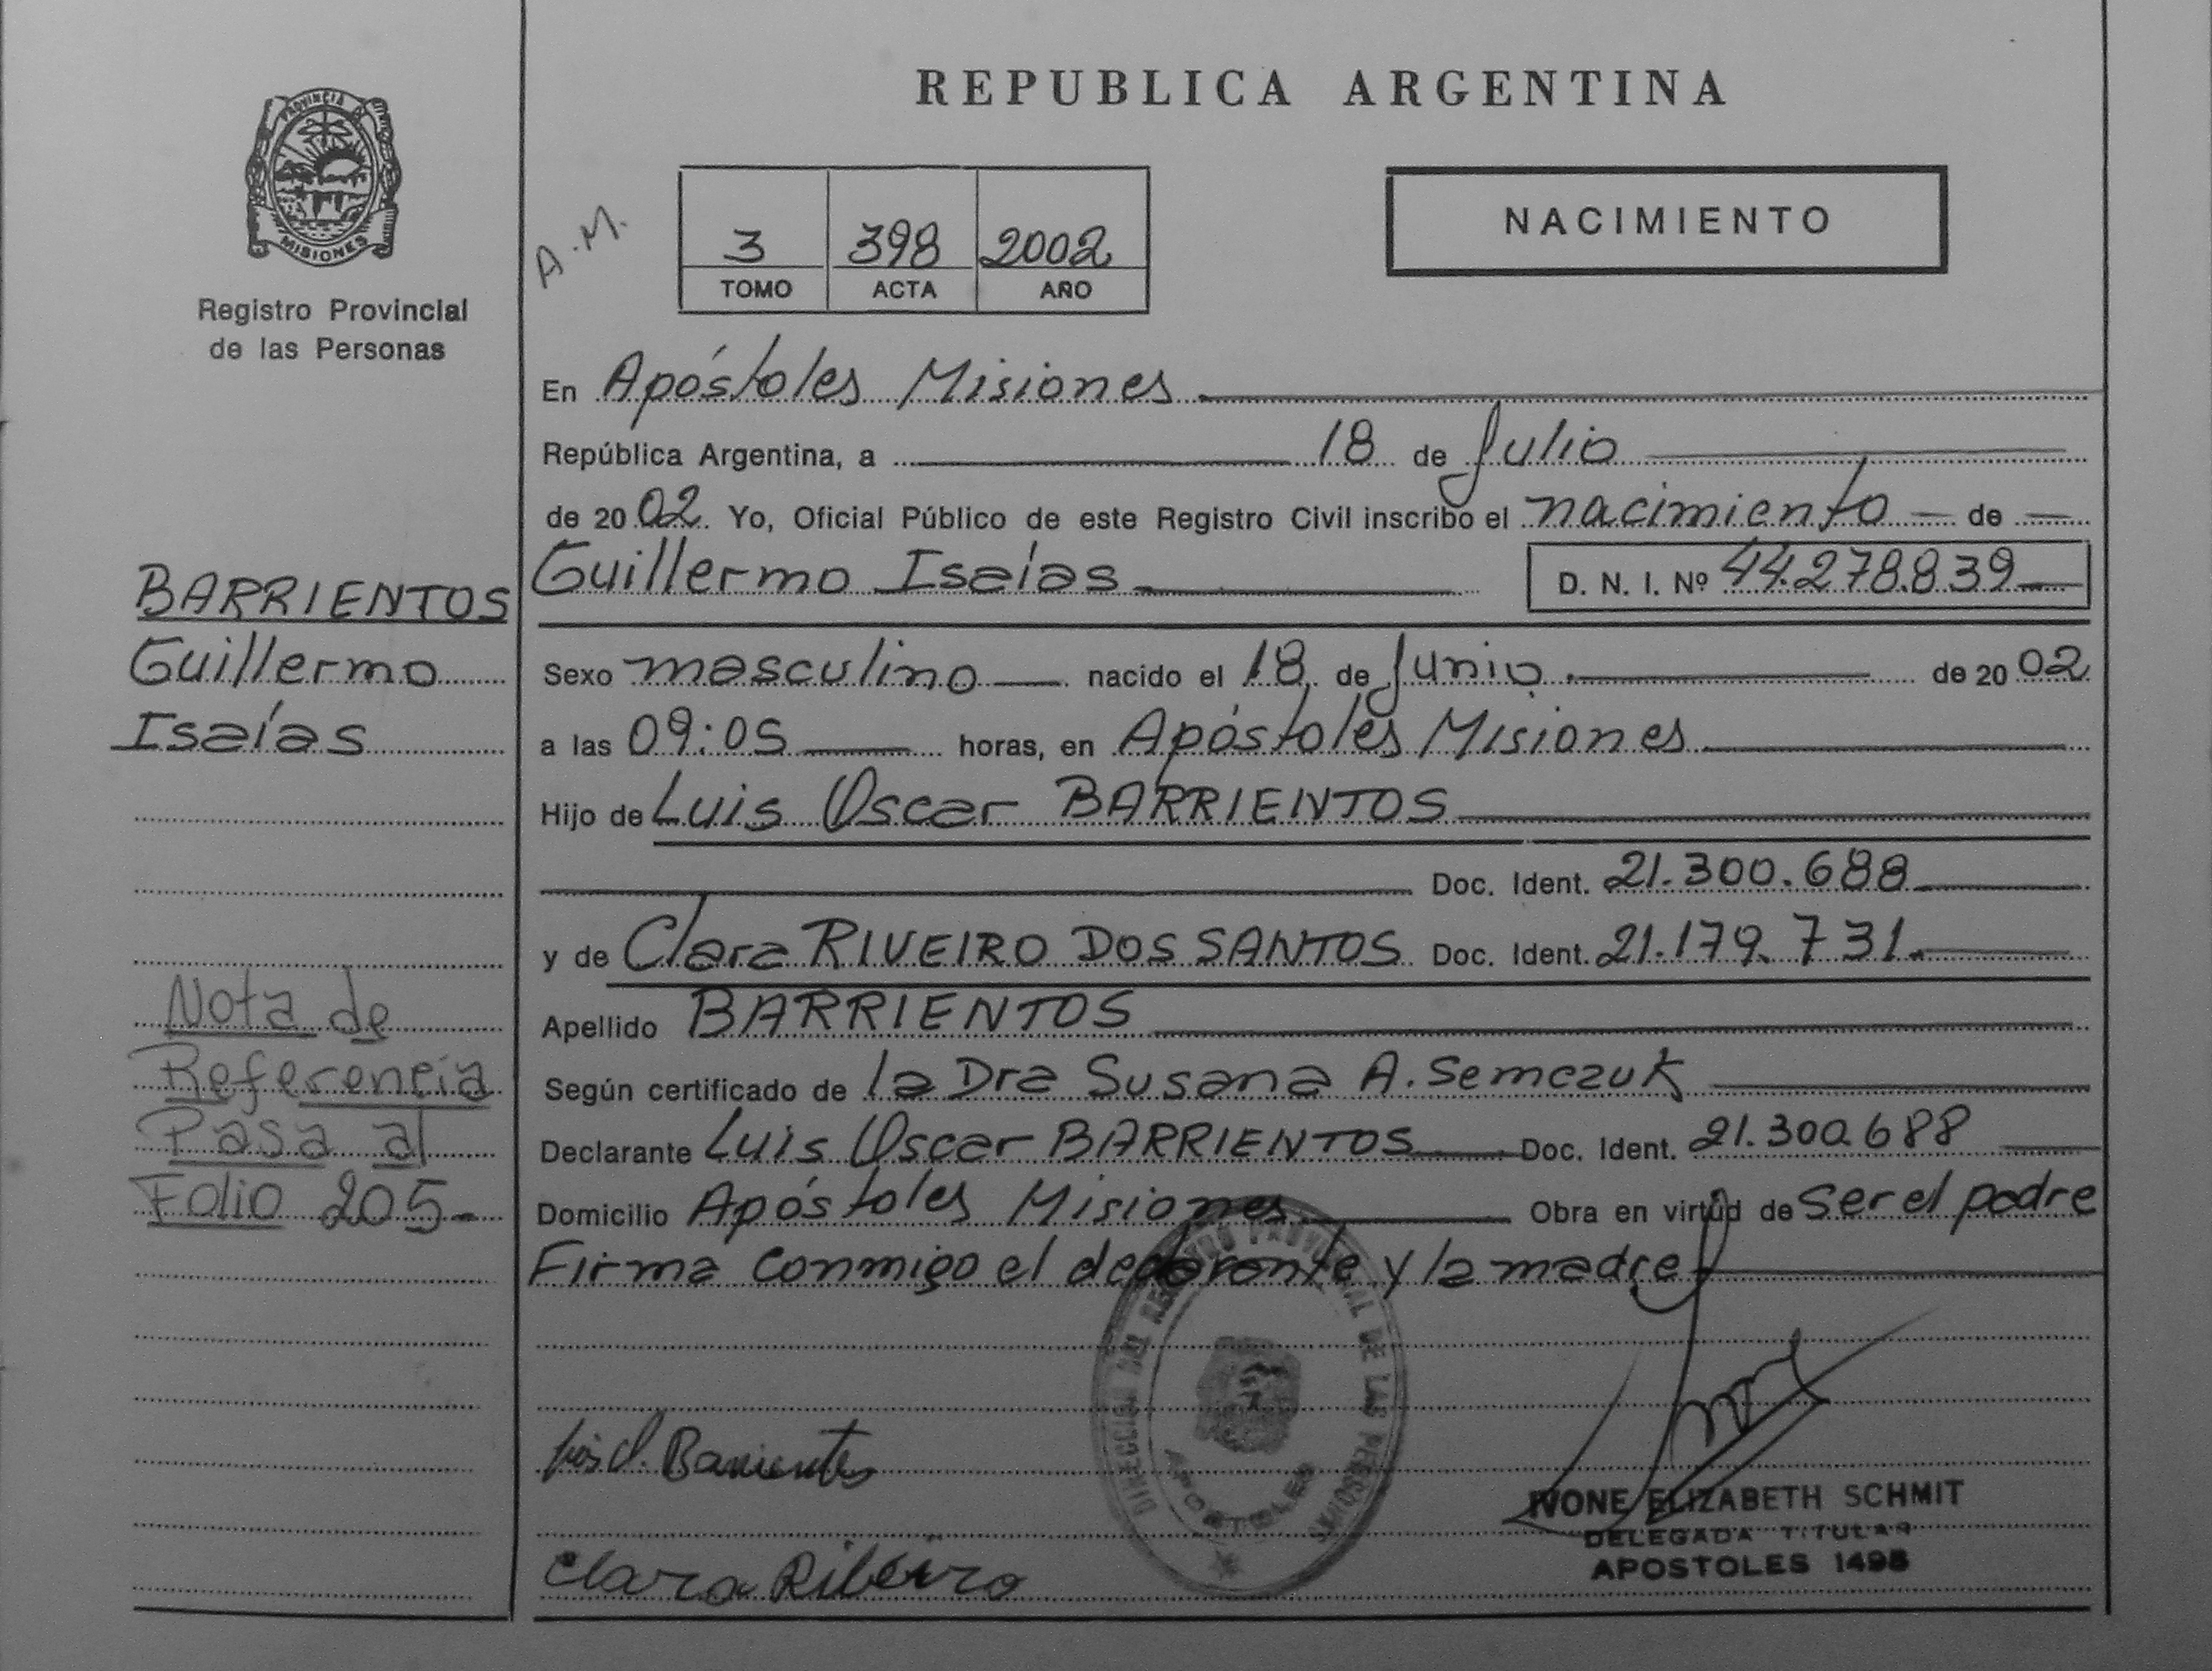 REPUBLICA ARGENTINA
PROVINCIA DE
MISIONES
Registro Provincial
de las Personas
A.M.
3 398 2002
TOMO ACTA AÑO
NACIMIENTO
En Apóstoles Misiones
República Argentina, a 18 de Julio
de 2002. Yo, Oficial Público de este Registro Civil inscribo el nacimiento de
Guillermo Isaías D. N. I. Nº 44.278.839
BARRIENTOS
Guillermo
Isaías
Sexo masculino nacido el 18 de Junio de 2002
a las 09:05 horas, en Apóstoles Misiones
Hijo de Luis Oscar BARRIENTOS
Doc. Ident. 21.300.688
y de Clara RIVEIRO DOS SANTOS Doc. Ident. 21.179.731
Apellido BARRIENTOS
Según certificado de la Dra Susana A. Semczuk
Declarante Luis Oscar BARRIENTOS Doc. Ident. 21.300.688
Domicilio Apóstoles Misiones Obra en virtud de ser el padre
Firma conmigo el declarante y la madre
Nota de
Referencia
Pasa al
Folio 205
DIRECCION DEL REGISTRO PROVINCIAL DE LAS PERSONAS
APOSTOLES
Luis O. Barrientos
Clara Ribeiro
IVONE ELIZABETH SCHMIT
DELEGADA TITULAR
APOSTOLES 1498